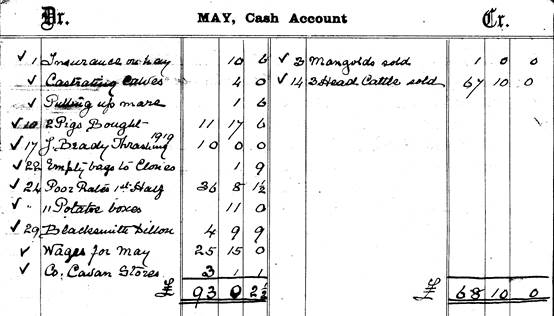 Dr. MAY, Cash Account Cr.
✓ 1 Insurance on hay 10 6
✓ Castrating calves 4 0
✓ Putting up mare 1 6
✓ 10 2 Pigs Bought 11 17 6
✓ 17 J. Brady Thrashing 1919 10 0 0
✓ 22 Empty bags to Clones 1 9
✓ 24 Poor Rates 1st Half 36 8 1½
✓ " 11 Potatoe boxes 11 0
✓ 29 Blacksmith Dillon 4 9 9
✓ Wages for May 25 15 0
✓ Co. Cavan Stores 3 1 1
£ 93 0 2½
✓ 3 Mangolds sold 1 0 0
✓ 14 3 Head Cattle sold 67 10 0
£ 68 10 0